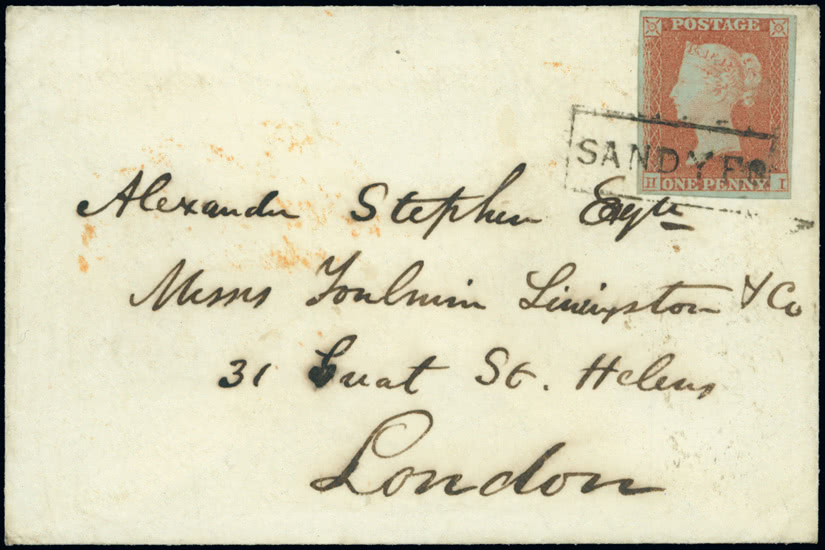 POSTAGE
SANDYFO
H ONE PENNY I
Alexander Stephen Esqre
Messrs Toulmin Livingston & Co
31 Great St. Helens
London